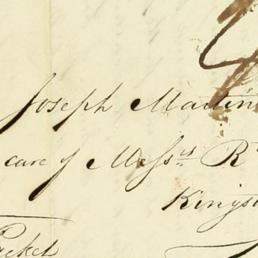 Joseph Martin
care of Messrs R
Kingst
Packet